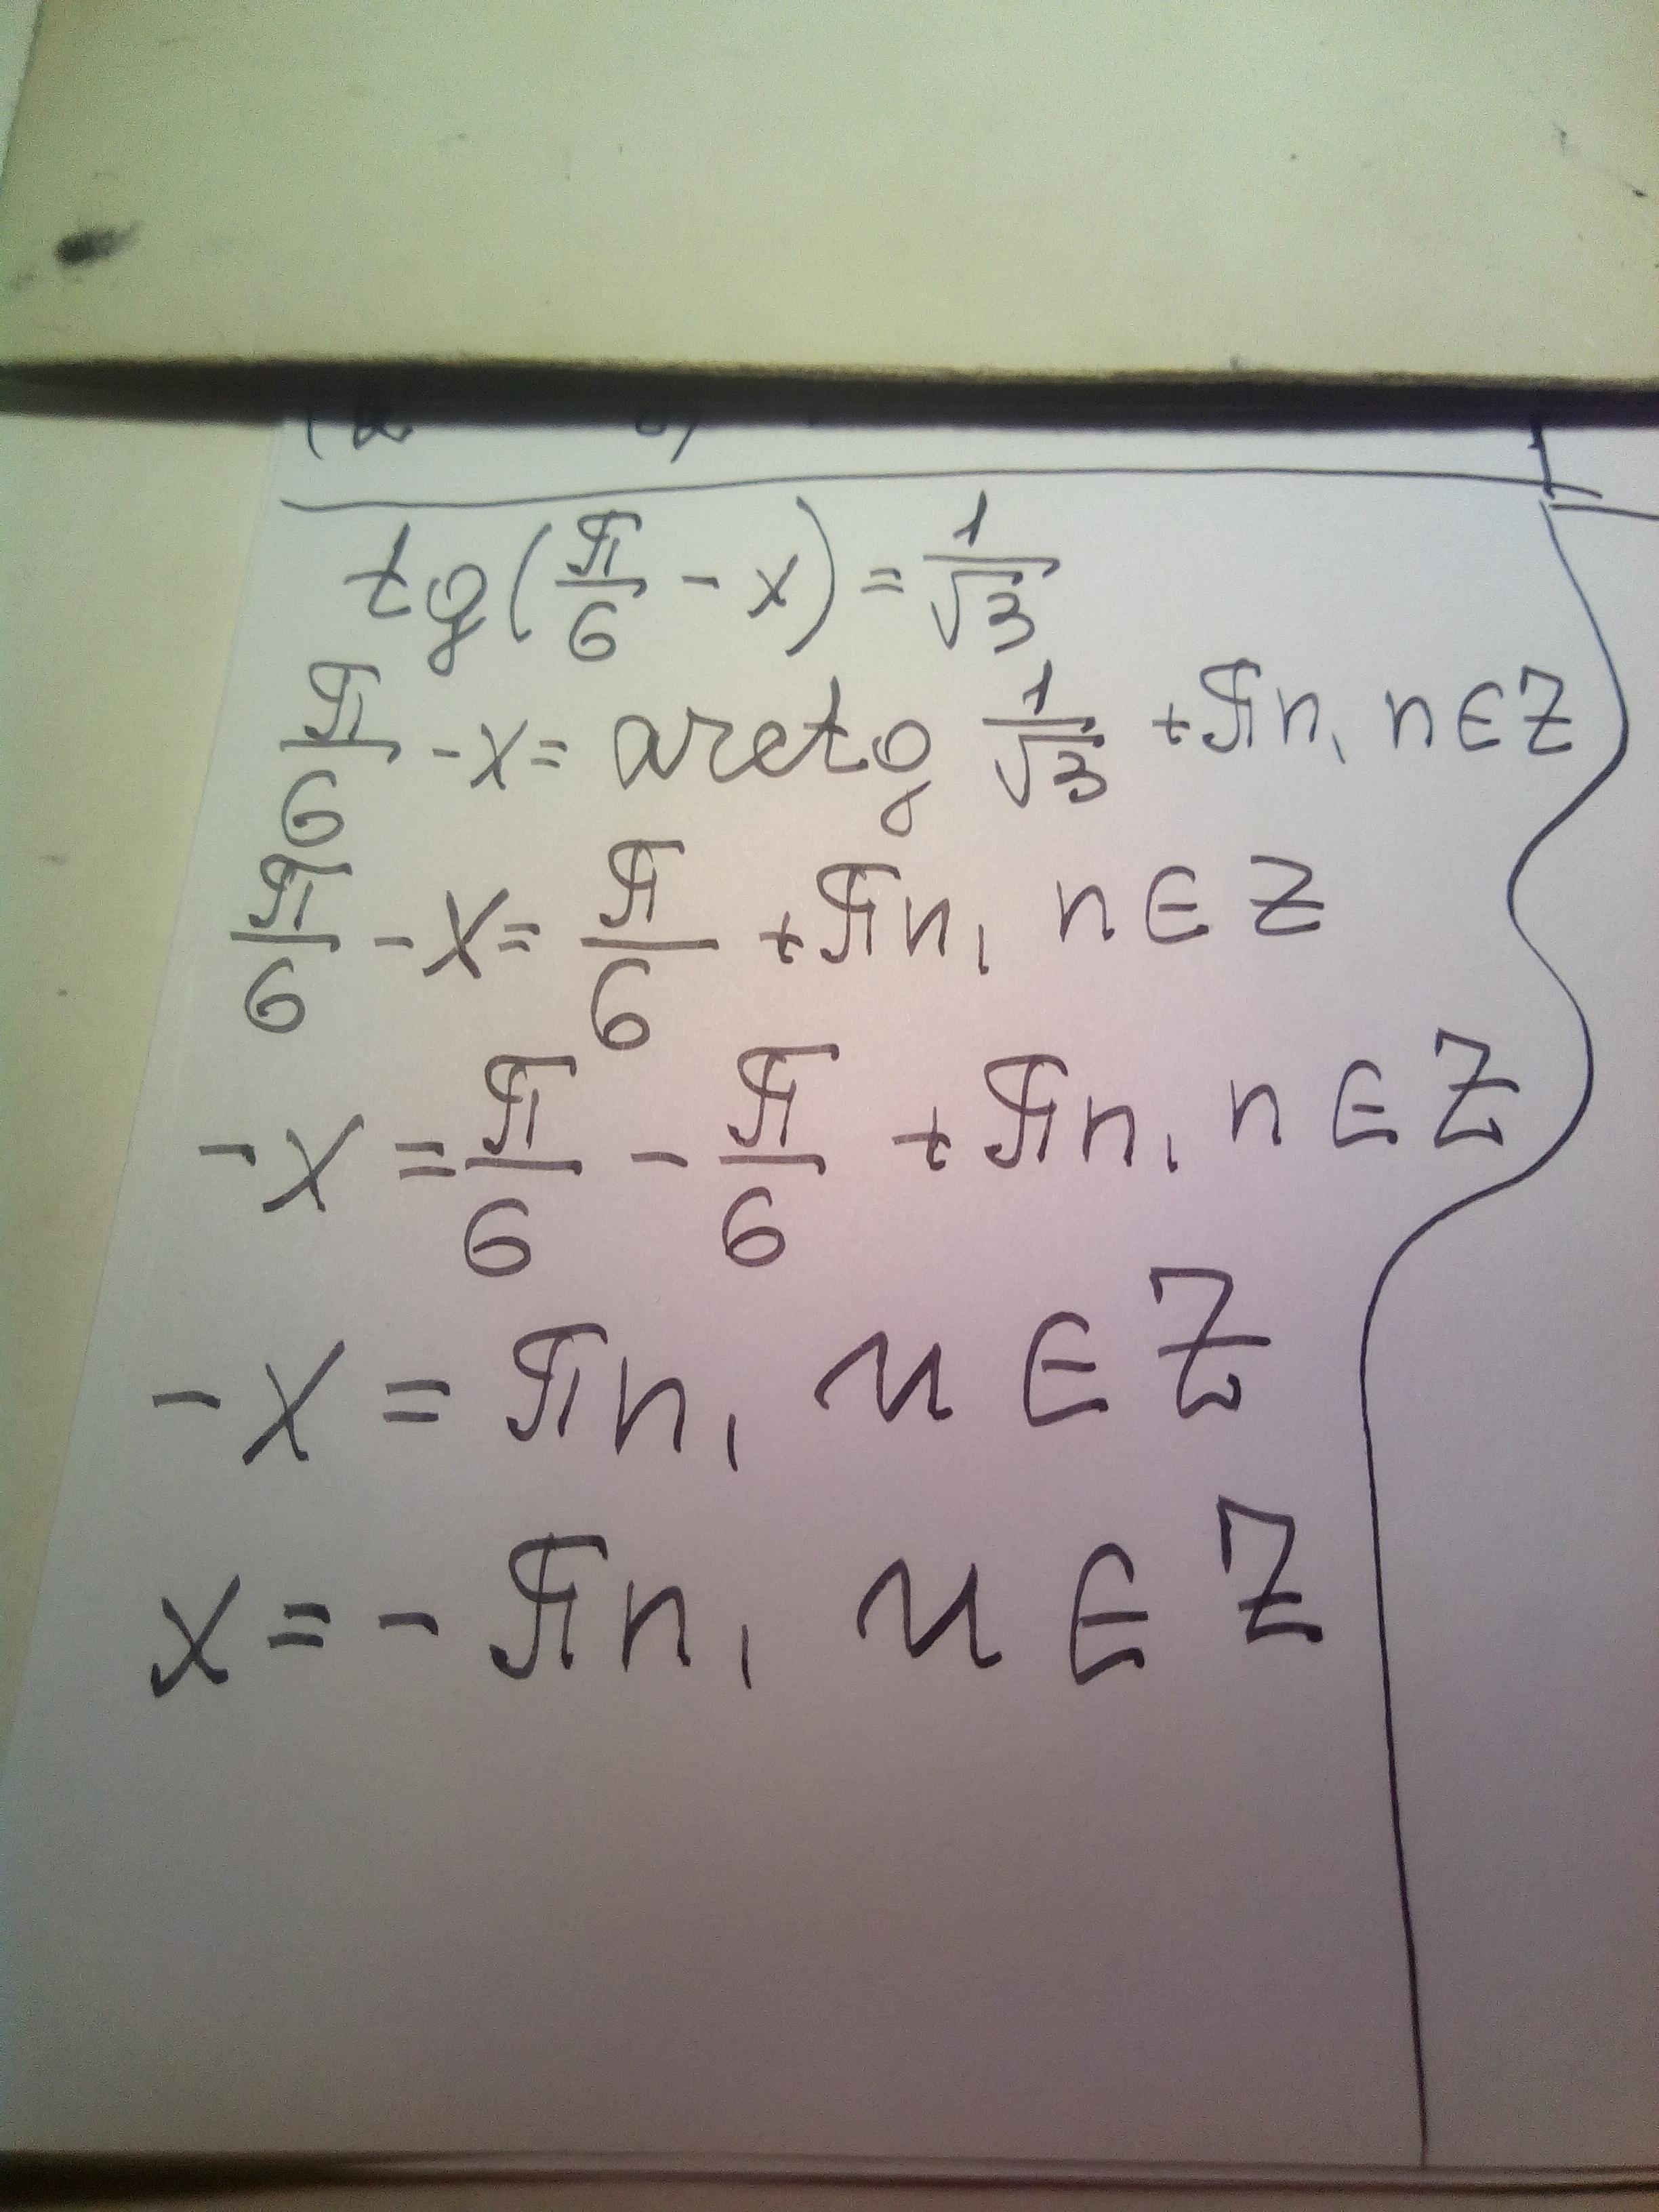 tg(π/6 - x) = 1/√3
π/6 - x = arctg 1/√3 + πn, n ∈ Z
π/6 - x = π/6 + πn, n ∈ Z
- x = π/6 - π/6 + πn, n ∈ Z
- x = πn, n ∈ Z
x = - πn, n ∈ Z